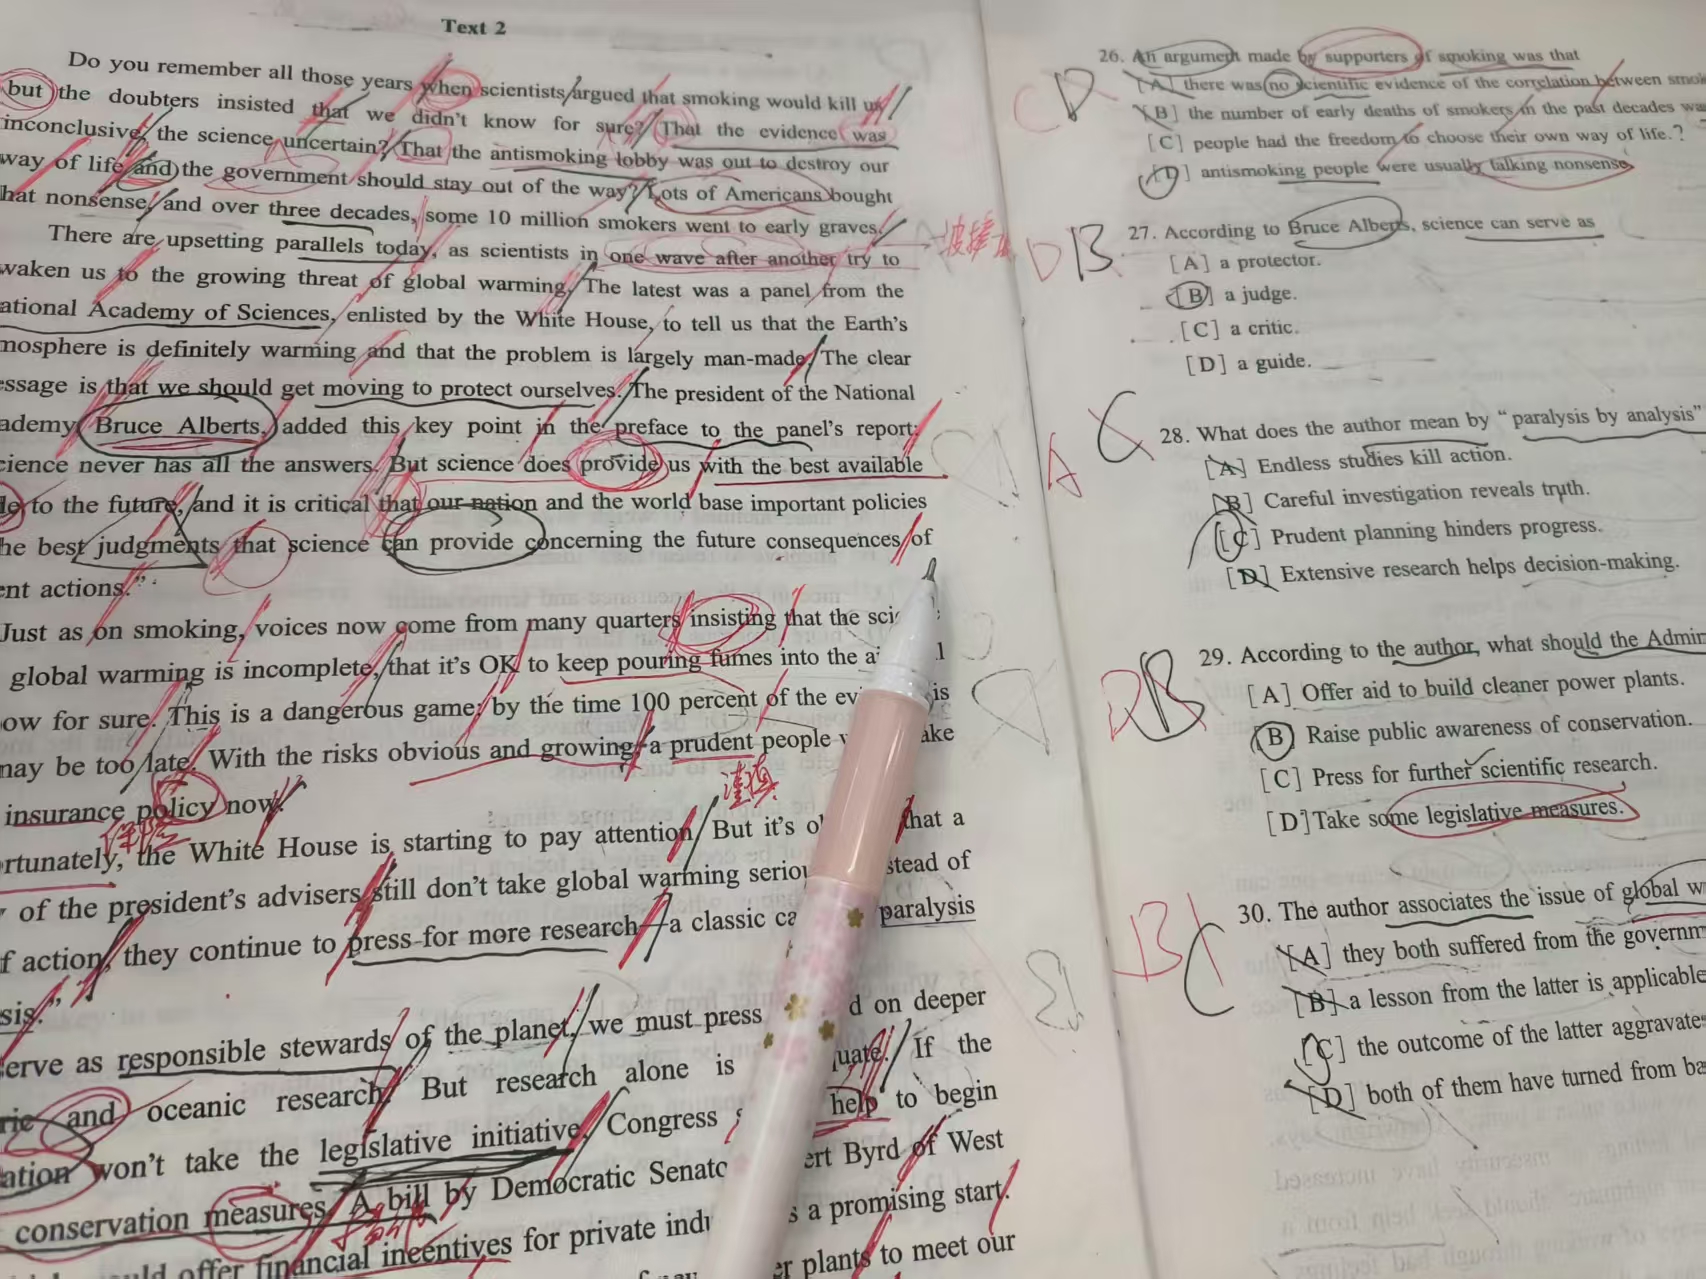 Text 2
Do you remember all those years when scientists argued that smoking would kill us
but the doubters insisted that we didn't know for sure? That the evidence was
inconclusive, the science uncertain? That the antismoking lobby was out to destroy our
way of life and the government should stay out of the way? Lots of Americans bought
hat nonsense, and over three decades, some 10 million smokers went to early graves.
There are upsetting parallels today, as scientists in one wave after another try to
waken us to the growing threat of global warming. The latest was a panel from the
ational Academy of Sciences, enlisted by the White House, to tell us that the Earth's
mosphere is definitely warming and that the problem is largely man-made. The clear
essage is that we should get moving to protect ourselves. The president of the National
ademy, Bruce Alberts, added this key point in the preface to the panel's report:
cience never has all the answers. But science does provide us with the best available
de to the future, and it is critical that our nation and the world base important policies
he best judgments that science can provide concerning the future consequences of
ent actions."
Just as on smoking, voices now come from many quarters insisting that the sci
global warming is incomplete, that it's OK to keep pouring fumes into the ai
ow for sure. This is a dangerous game: by the time 100 percent of the evi is
may be too late. With the risks obvious and growing, a prudent people ake
谨慎
insurance policy now.
保险
rtunately, the White House is starting to pay attention. But it's o hat a
of the president's advisers still don't take global warming seriou stead of
f action, they continue to press for more research—a classic ca paralysis
sis."
erve as responsible stewards of the planet, we must press d on deeper
ric and oceanic research. But research alone is uate. If the
ation won't take the legislative initiative, Congress help to begin
conservation measures. A bill by Democratic Senato ert Byrd of West
ould offer financial incentives for private indu s a promising start.
er plants to meet our
26. An argument made by supporters of smoking was that
[A] there was no scientific evidence of the correlation between smo
[B] the number of early deaths of smokers in the past decades wa
[C] people had the freedom to choose their own way of life. ?
[D] antismoking people were usually talking nonsense.
C D
27. According to Bruce Alberts, science can serve as
[A] a protector.
[B] a judge.
[C] a critic.
[D] a guide.
D B
28. What does the author mean by "paralysis by analysis"
[A] Endless studies kill action.
[B] Careful investigation reveals truth.
[C] Prudent planning hinders progress.
[D] Extensive research helps decision-making.
A C
29. According to the author, what should the Admin
[A] Offer aid to build cleaner power plants.
[B] Raise public awareness of conservation.
[C] Press for further scientific research.
[D] Take some legislative measures.
D B
30. The author associates the issue of global w
[A] they both suffered from the governm
[B] a lesson from the latter is applicable
[C] the outcome of the latter aggravates
[D] both of them have turned from ba
B C